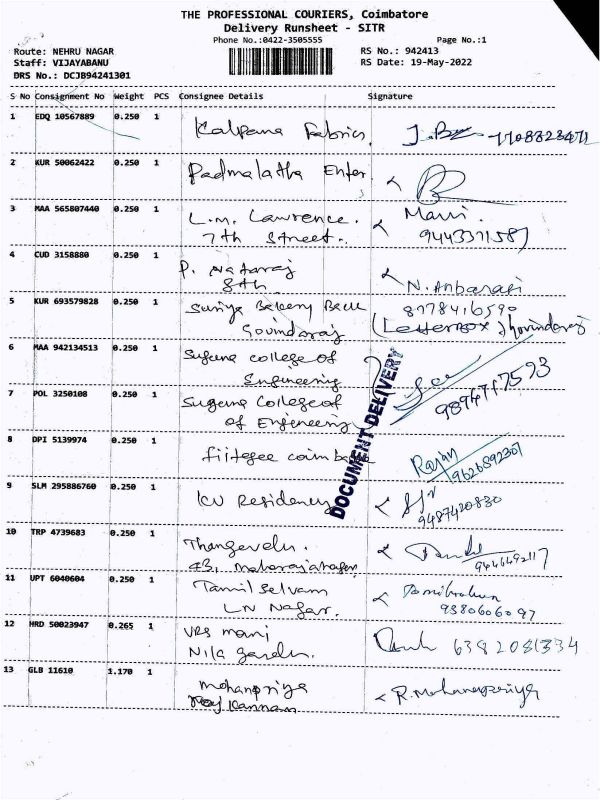 THE PROFESSIONAL COURIERS, Coimbatore
Delivery Runsheet - SITR
Phone No.:0422-3505555 Page No.:1
Route: NEHRU NAGAR RS No.: 942413
Staff: VIJAYABANU RS Date: 19-May-2022
DRS No.: DCJB94241301
S No Consignment No Weight PCS Consignee Details Signature
1 EDQ 10567889 0.250 1 Kalpana Fabrics,
2 KUR 50062422 0.250 1 Padmalatha Enter.
3 MAA 565807440 0.250 1 L.M. Lawrence. Mani.
7th Street..
4 CUD 3158880 0.250 1 P. Nataraj N. Anbarasi
8th
5 KUR 693579828 0.250 1 Suriya Bakery Back 8778416590
Govindaraj (Letterbox) Govindaraj
6 MAA 942134513 0.250 1 Suguna college of
Engineering
7 POL 3250108 0.250 1 Suguna College of 9894717593
of Engineering
8 DPI 5139974 0.250 1 fiitegee Rajan
9626892307
9 SLM 295886760 0.250 1 KV Residency
9487420830
10 TRP 4739683 0.250 1 Thangavelu.
43, maharajanagar
11 UPT 6040604 0.250 1 Tamil Selvam
LN Nagar. 9380606097
12 HRD 50023947 0.265 1 VRS mani 6382081334
Nila garden.
13 GLB 11610 1.170 1 Mohanpriya R. Mohanapriya
Kannan
DOCUMENT DELIVERY